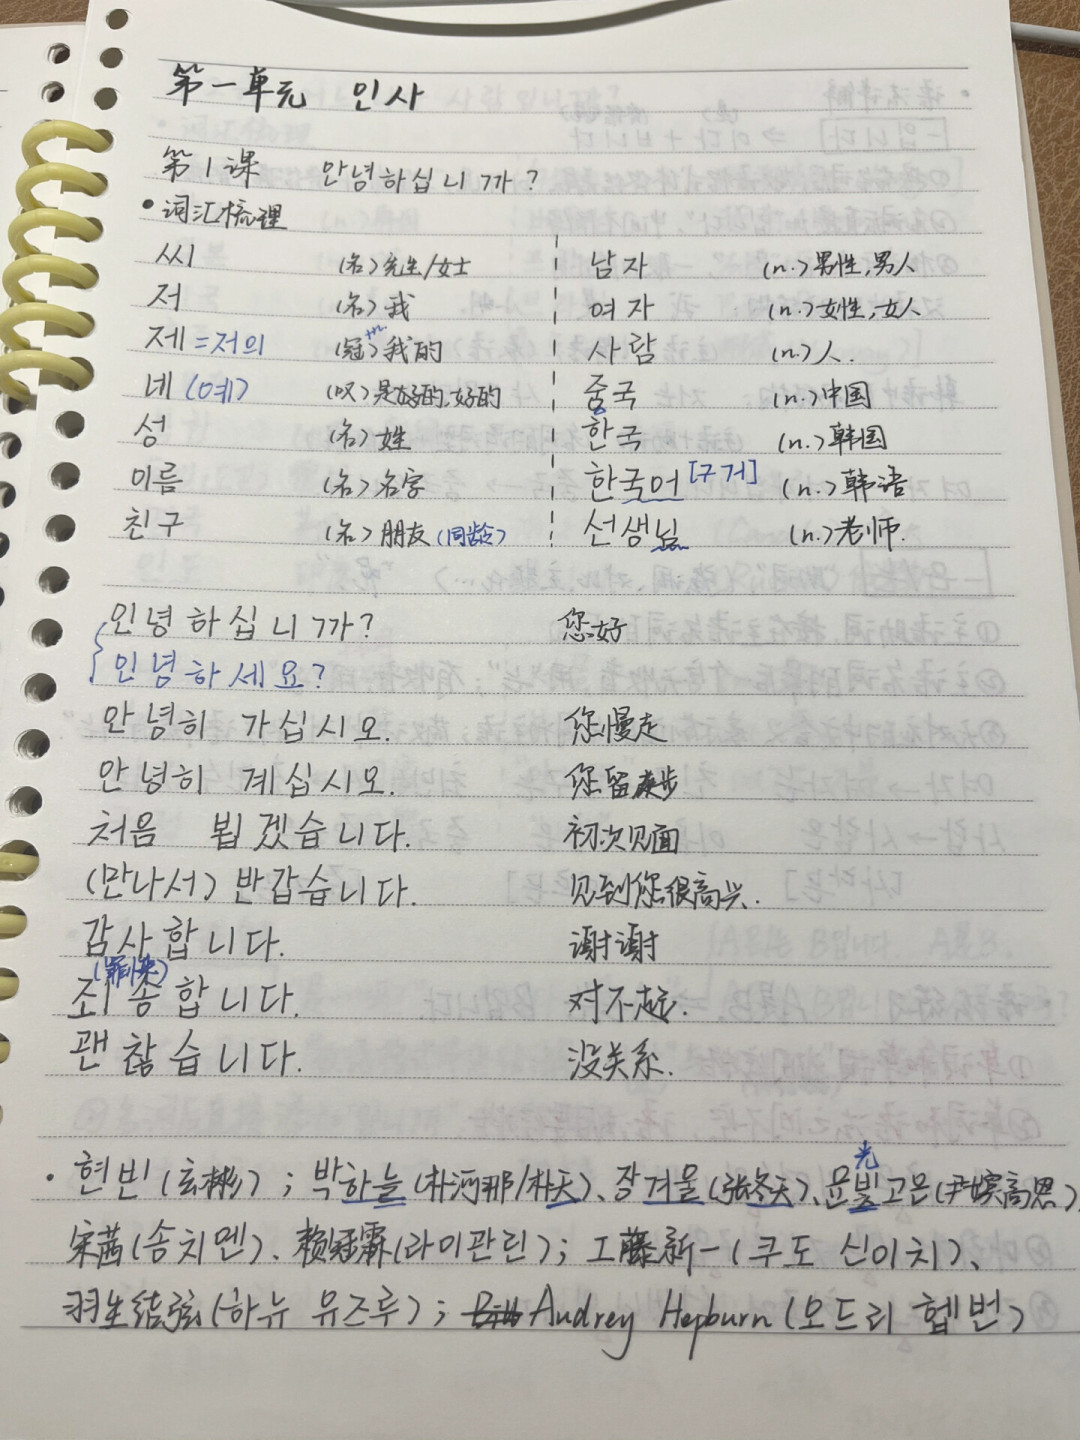 第一单元 인사
第1课 안녕하십니까?
•词汇梳理
씨 (名)先生/女士 남자 (n.)男性,男人
저 (名)我 여자 (n.)女性,女人
제=저의 (冠)我的 사람 (n.)人.
네(예) (叹)是的,好的 중국 (n.)中国
성 (名)姓 한국 (n.)韩国
이름 (名)名字 한국어[구거] (n.)韩语
친구 (名)朋友(同龄) 선생님 (n.)老师.
안녕하십니까? 您好
안녕하세요?
안녕히 가십시오. 您慢走
안녕히 계십시오. 您留步
처음 뵙겠습니다. 初次见面
(만나서) 반갑습니다. 见到您很高兴.
감사합니다. 谢谢
죄송합니다. 对不起.
괜찮습니다. 没关系.
·현빈(玄彬);박하늘(朴河那/朴天)、장겨울(张冬天)、윤빛고은(尹嫔高恩)
光
宋茜(송치엔)、赖冠霖(라이관린);工藤新一(쿠도 신이치)、
羽生结弦(하뉴 유즈루);Audrey Hepburn(오드리 헵번)